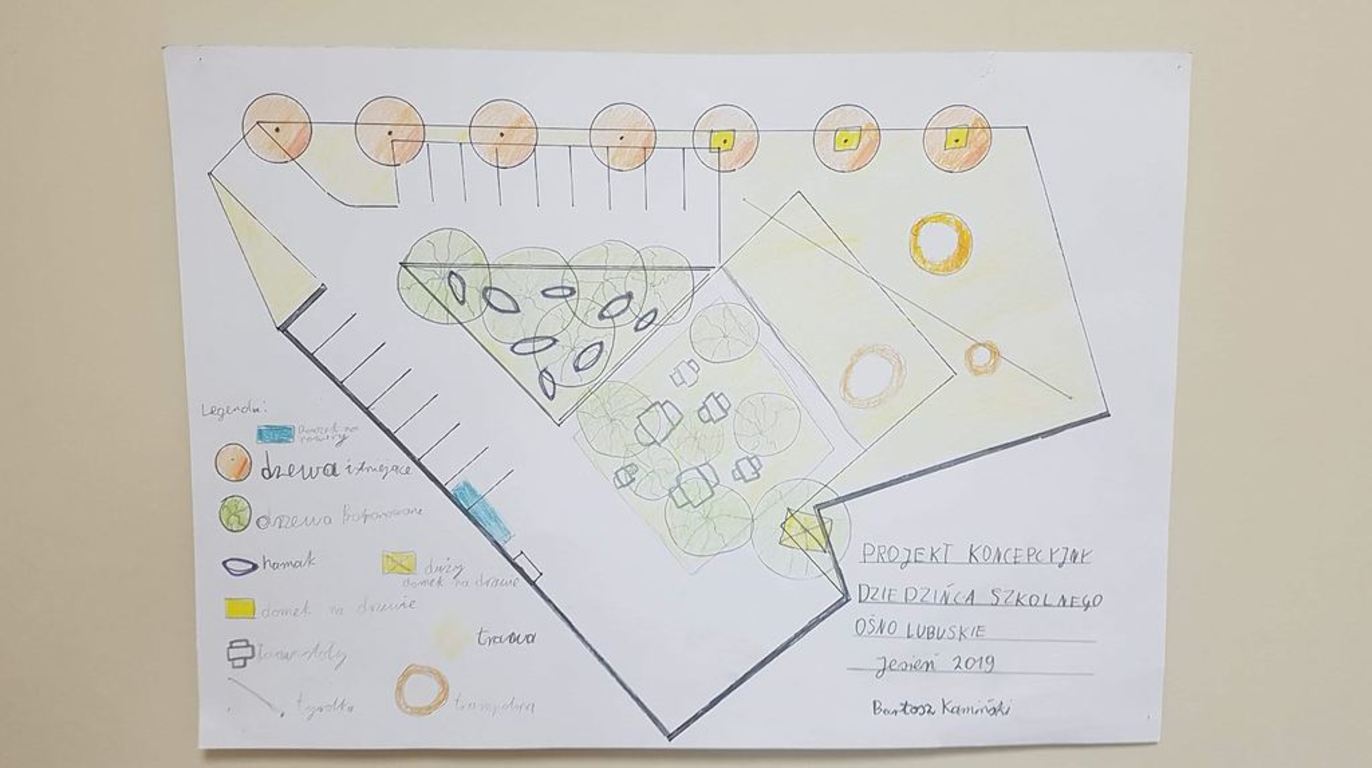 Legenda:
Domek na
rowery
dzewa istniejące
drzewa
hamak
duży
domek na drzewie
domek na drzewie
trawa
tyrolka
trampolina
PROJEKT KONCEPCYJNY
DZIEDZIŃCA SZKOLNEGO
OŚNO LUBUSKIE
Jesień 2019
Bartosz Kamiński